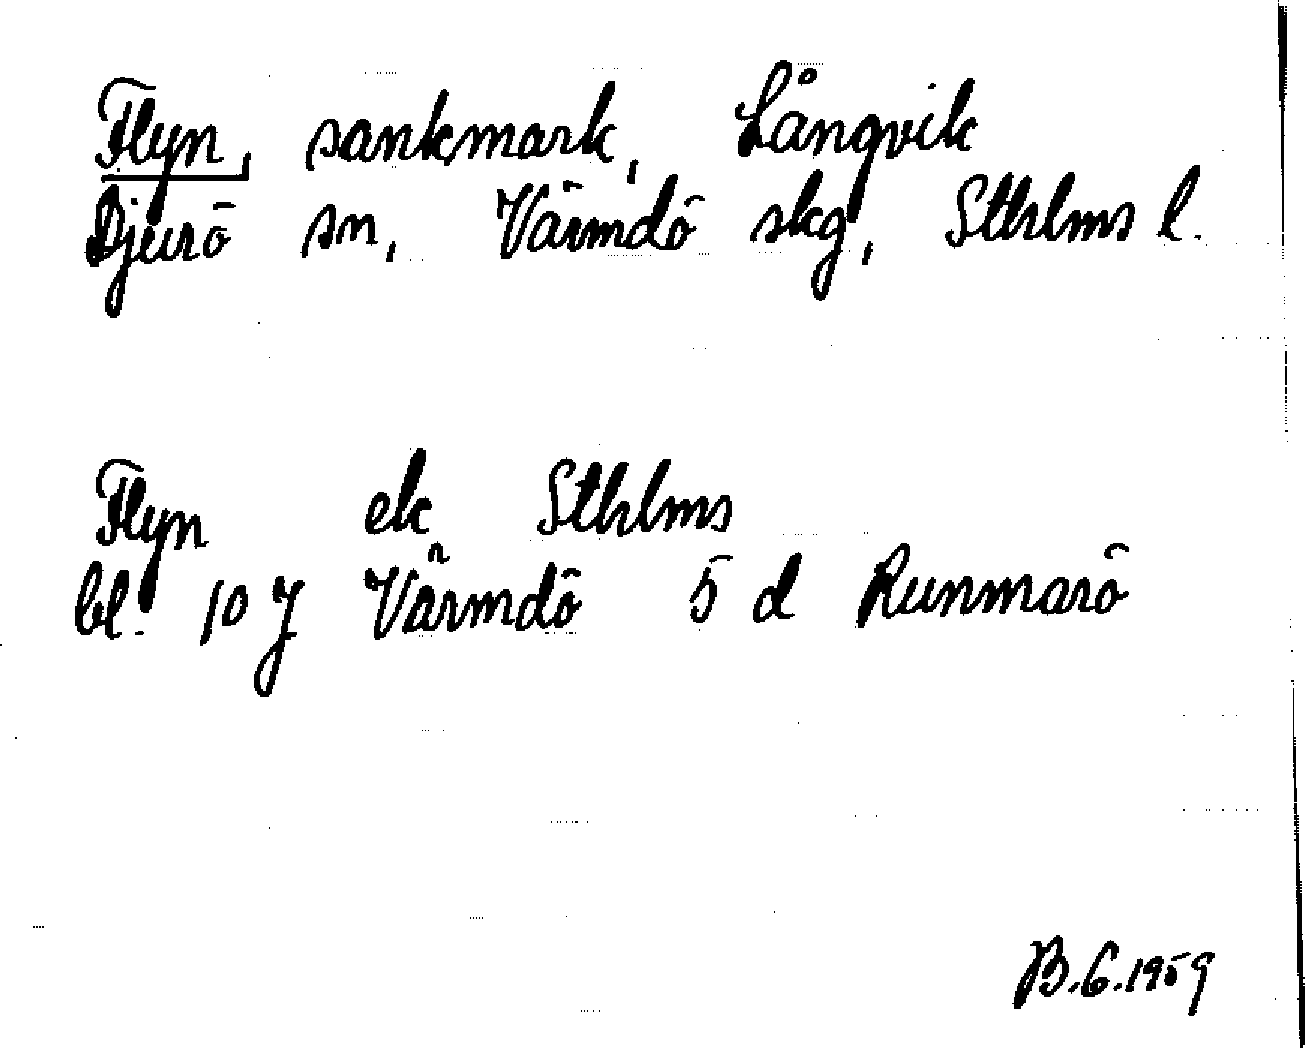 Flyn, sankmark, Långvik
Djurö sn, Värmdö skg, Sthlms l.
Flyn ek Sthlms
bl. 10 J Värmdö 5 d Runmarö
B.G.1959